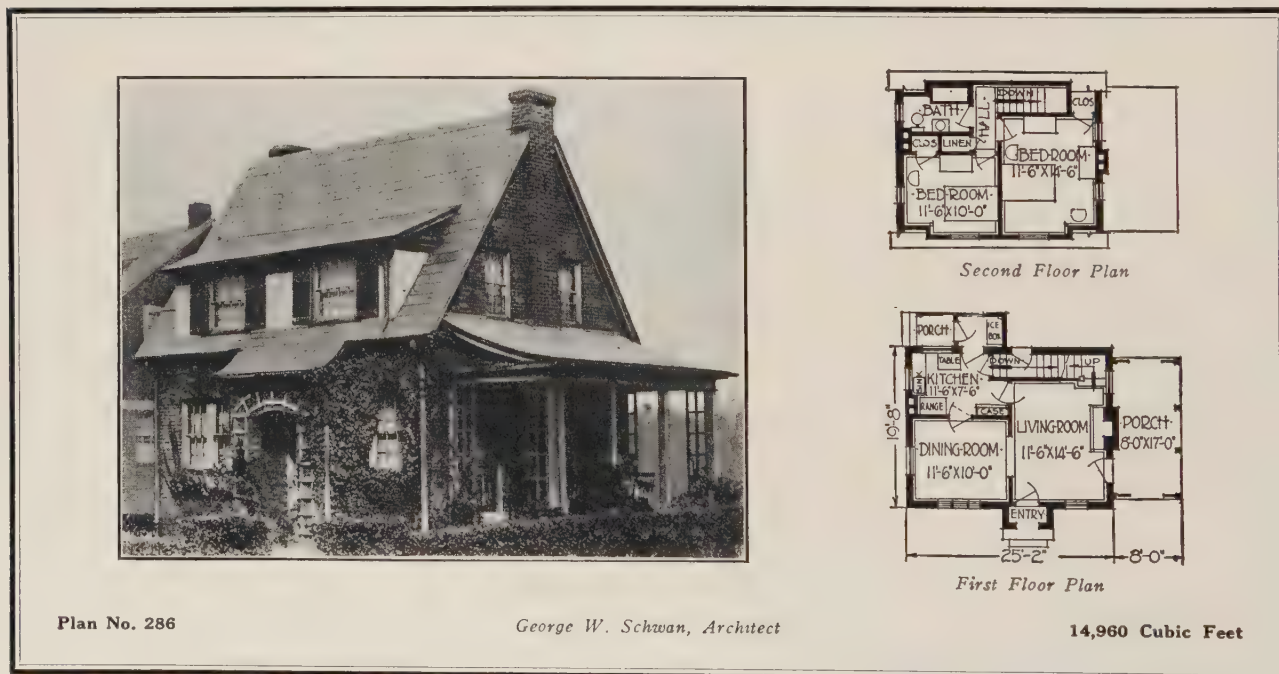 DOWN
CLOS
BATH
HALL
CLOS
LINEN
BED-ROOM
11'-6"X14'-6"
BED-ROOM
11'-6"X10'-0"
Second Floor Plan
PORCH
ICE
BOX
TABLE
DOWN
UP
SINK
KITCHEN
11'-6"X7'-6"
RANGE
CASE
LIVING-ROOM
11'-6"X14'-6"
PORCH
8'-0"X17'-0"
DINING-ROOM
11'-6"X10'-0"
19'-8"
ENTRY
25'-2"
8'-0"
First Floor Plan
Plan No. 286
George W. Schwan, Architect
14,960 Cubic Feet